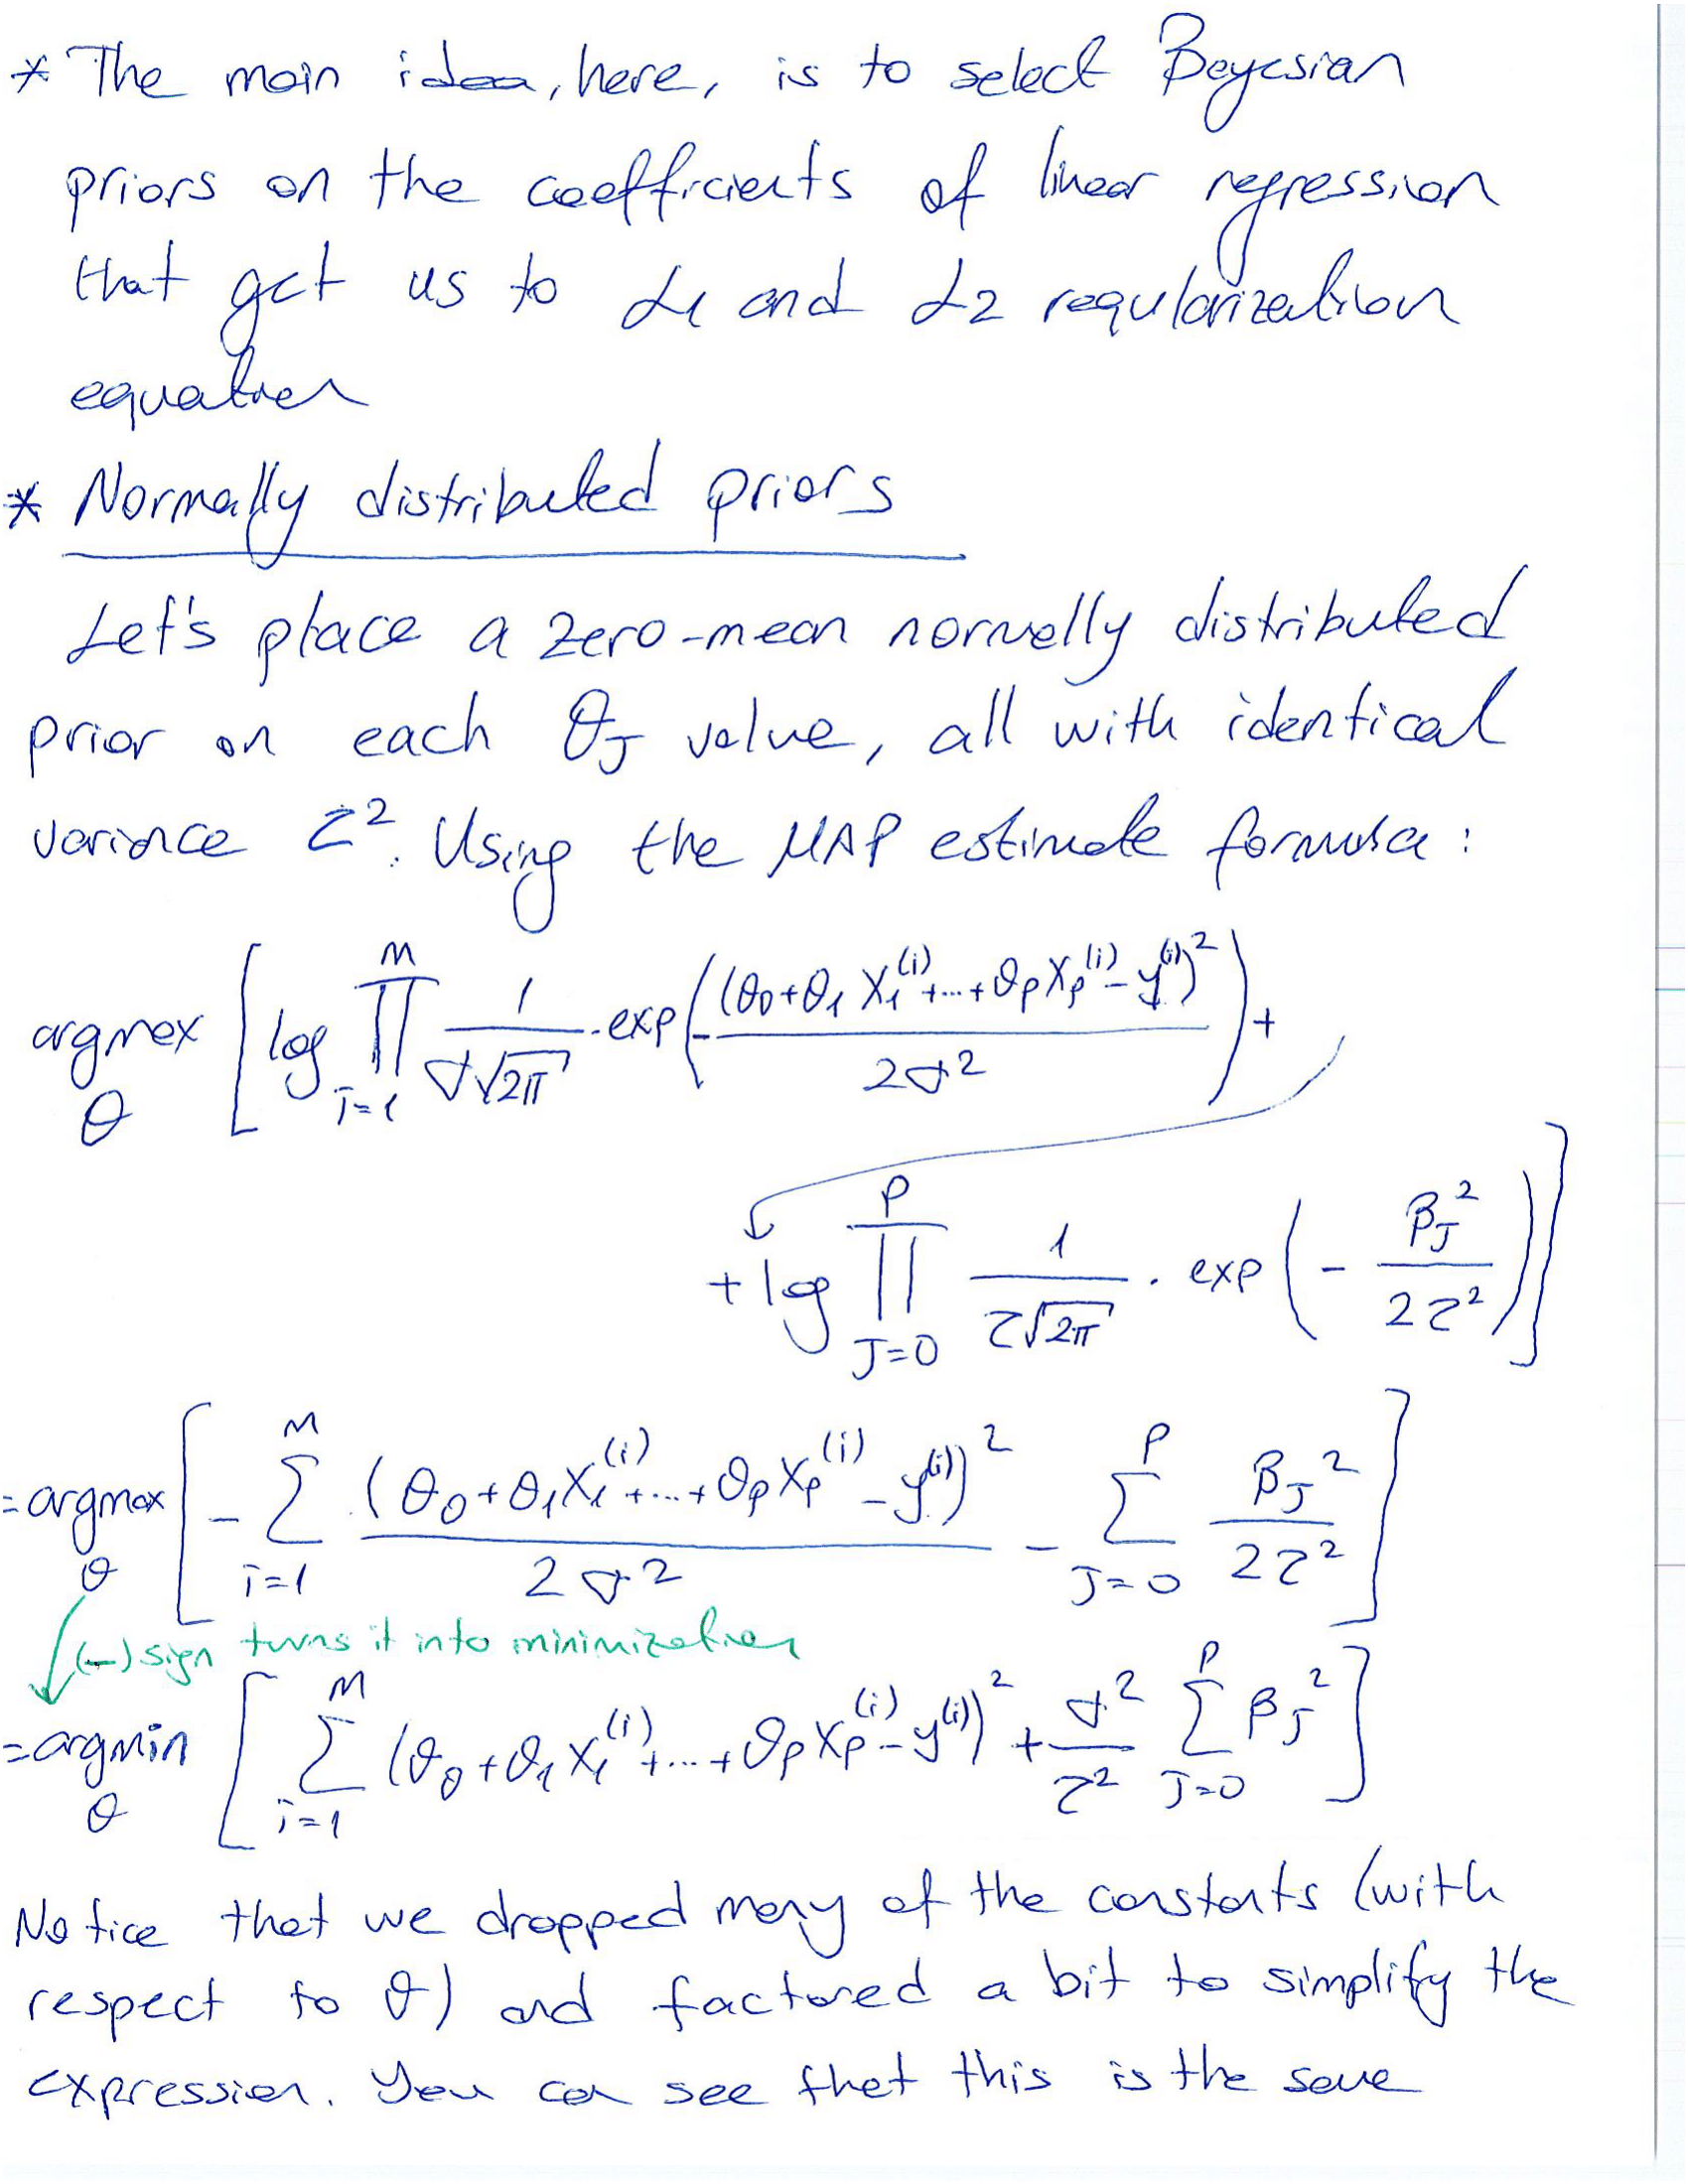 * The main idea, here, is to select Bayesian
priors on the coefficients of linear regression
that get us to L1 and L2 regularization
equation
* Normally distributed priors
Let's place a zero-mean normally distributed
prior on each θ_J value, all with identical
variance τ². Using the MAP estimate formula:
argmax_θ [ log ∏_{i=1}^{M} 1/(σ√2π) · exp(-(θ0+θ1 X1^(i)+...+θp Xp^(i) - y^(i))²/2σ²) +
+ log ∏_{J=0}^{P} 1/(τ√2π) · exp(-β_J²/2τ²) ]
= argmax_θ [ - ∑_{i=1}^{M} (θ0+θ1 X1^(i)+...+θp Xp^(i) - y^(i))²/2σ² - ∑_{J=0}^{P} β_J²/2τ² ]
(-) sign turns it into minimization
= argmin_θ [ ∑_{i=1}^{M} (θ0+θ1 X1^(i)+...+θp Xp^(i) - y^(i))² + σ²/τ² ∑_{J=0}^{P} β_J² ]
Notice that we dropped many of the constants (with
respect to θ) and factored a bit to simplify the
expression. You can see that this is the same